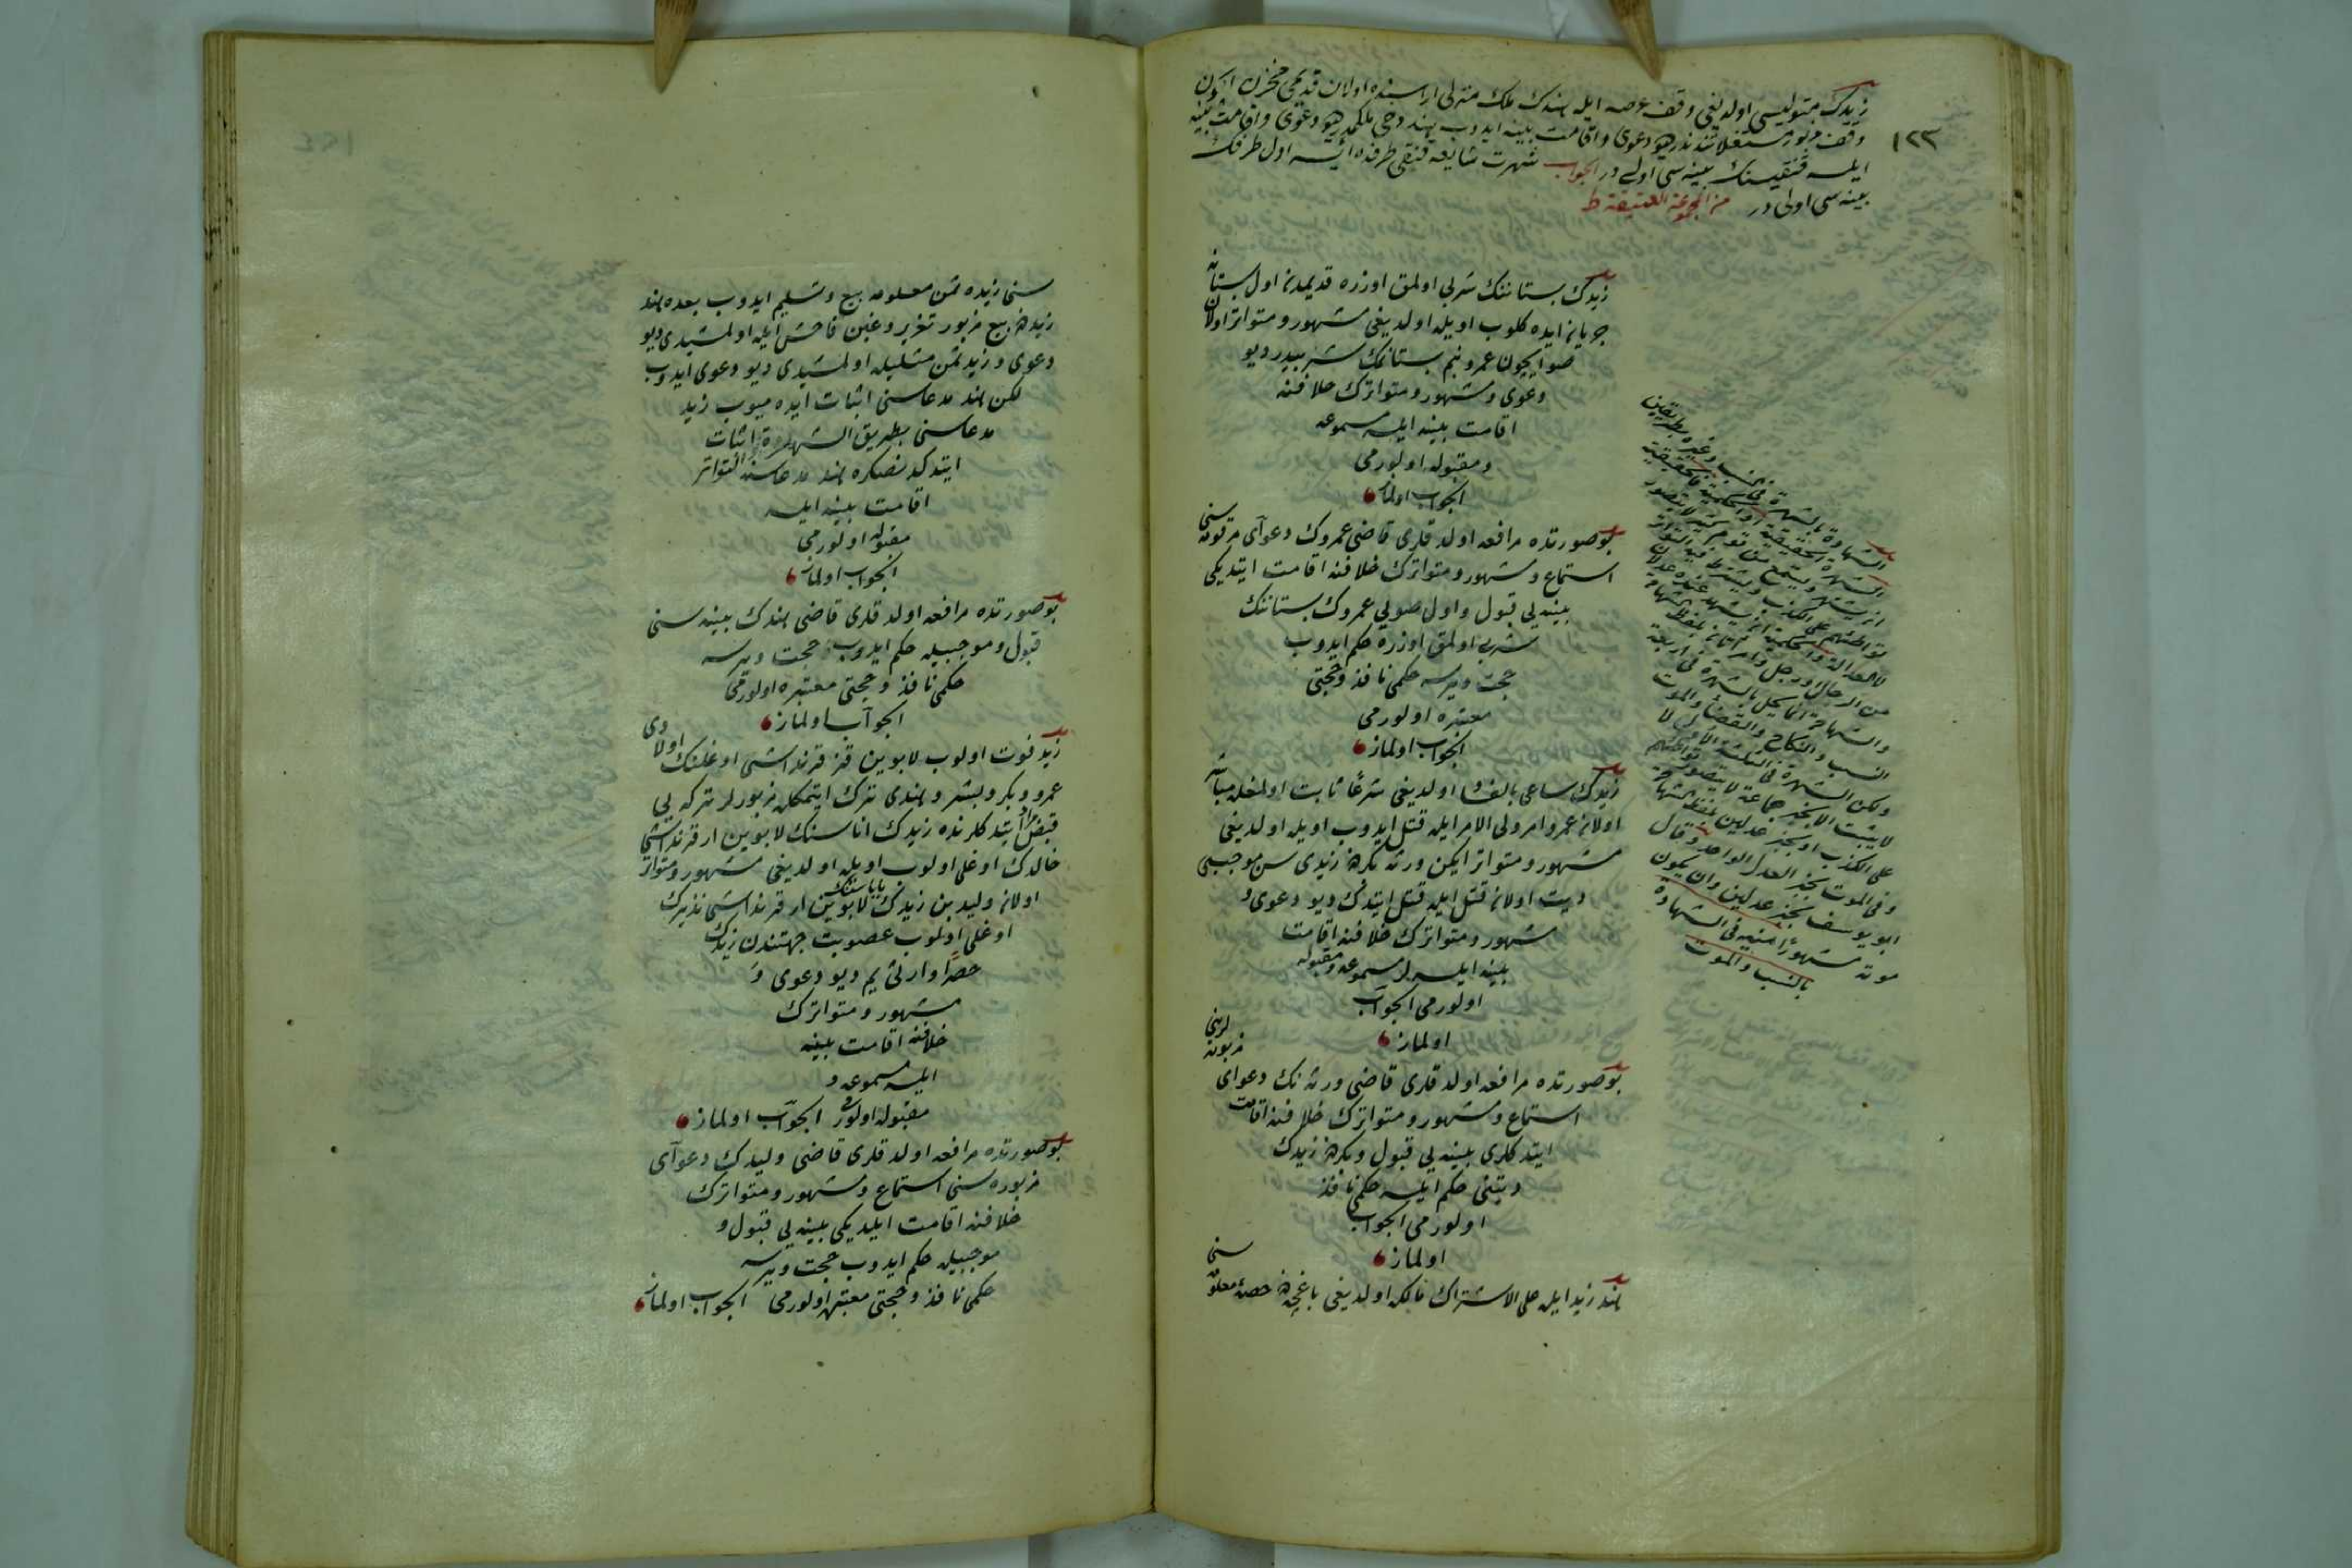 ١٢٣
زيدك متوليسى اولديغى وقف عرصه ايله هندك ملك منزلى اراسنده اولان قديمى مخزن ايچون
وقف مزبور مستغلاتندندر ديو دعوى و اقامت بينه ايدوب هند دخى ملكمدر ديو دعوى و اقامت بينه
ايلسه قنقيسنك بينه سى اولى در الجواب شهرت شايعه قنقى طرفده ايسه اول طرفك
بينه سى اولى در من المجموعة العتيقة ط
زيدك بستاننك شربى اولمق اوزره قديمدن اول بستانه
جريان ايده كلوب اويله اولديغى مشهور و متواتر اولان
صو ايچون عمرو بنم بستانمك شربيدر ديو
دعوى و مشهور و متواترك خلافنه
اقامت بينه ايلسه مسموعه
و مقبوله اولورمى
الجواب اولماز
بو صورتده مرافعه اولدقلرى قاضى عمروك دعواى مرقومه سنى
استماع و مشهور و متواترك خلافنه اقامت ايتديكى
بينه يى قبول و اول صويى عمروك بستاننك
شربى اولمق اوزره حكم ايدوب
حجت ويرسه حكمى نافذ و حجتى
معتبره اولورمى
الجواب اولماز
زيدك ساعى بالفساد اولديغى شرعاً ثابت اولمغله مباشر
اولان عمرو امر ولى الامر ايله قتل ايدوب اويله اولديغى
مشهور و متواتر ايكن ورثه بكره زيدى سن موجبى
ديت اولان قتل ايله قتل ايتدك ديو دعوى و
مشهور و متواترك خلافنه اقامت
بينه ايلسه لر مسموعه و مقبوله
اولورمى الجواب
اولماز
بو صورتده مرافعه اولدقلرى قاضى ورثه نك دعواى مزبوره لرينى
استماع و مشهور و متواترك خلافنه اقامت
ايتدكلرى بينه يى قبول و بكره زيدك
ديتنى حكم ايلسه حكمى نافذ
اولورمى الجواب
اولماز
هند زيد ايله على الاشتراك مالكه اولديغى باغچه ده حصه معلومه سنى
الشهادة بالشهرة فى النسب وغيره بطريقين
الشهرة الحقيقية او الحكمية فالحقيقية
ان يشتهر ويسمع من قوم كثير لا يتصور
تواطئهم على الكذب ويشترط فيه التواتر
لا العدالة والحكمية ان يشهد عنده عدلان
من الرجال او رجل وامرأتان بلفظ الشهادة
والشهادة انما يحل بالشهرة فى اربعة
النسب والنكاح والقضاء والموت
ولكن الشهرة فى الثلثة الاول لا
لا يثبت الا بخبر جماعة لا يتصور تواطئهم
على الكذب او بخبر عدلين بلفظ الشهادة
وفى الموت بخبر العدل الواحد وقال
ابو يوسف بخبر عدلين وان يكون
موته مشهوراً منيه فى الشهادة
بالنسب والموت
سنى زيده ثمن معلومه بيع و تسليم ايدوب بعده هند
زيده بيع مزبور تغرير و غبن فاحش ايله اولمشيدى ديو
دعوى و زيد ثمن مثليله اولمشيدى ديو دعوى ايدوب
لكن هند مدعاسنى اثبات ايده ميوب زيد
مدعاسنى بطريق الشهرة و التواتر اثبات
ايتدكدنصكره هند مدعاسنه
اقامت بينه ايلسه
مقبوله اولورمى
الجواب اولماز
بو صورتده مرافعه اولدقلرى قاضى هندك بينه سنى
قبول و موجبيله حكم ايدوب حجت ويرسه
حكمى نافذ و حجتى معتبره اولورمى
الجواب اولماز
زيد فوت اولوب لابوين قز قرنداشى اوغلنك اولادى
عمرو و بكر و بشر و هندى ترك ايتمكله مزبورلر تركه يى
قبض ايتدكلرنده زيدك اناسنك لابوين ار قرنداشى
خالدك اوغلى اولوب اويله اولديغى مشهور و متواتر
اولان وليد بن زيدك باباسنك لابوين ار قرنداشى نذيرك
اوغلى اولوب عصوبت جهتندن زيدك
حصراً وارثى يم ديو دعوى و
مشهور و متواترك
خلافنه اقامت بينه
ايلسه مسموعه و
مقبوله اولورمى الجواب اولماز
بو صورتده مرافعه اولدقلرى قاضى وليدك دعواى
مزبوره سنى استماع و مشهور و متواترك
خلافنه اقامت ايلديكى بينه يى قبول و
موجبيله حكم ايدوب حجت ويرسه
حكمى نافذ و حجتى معتبره اولورمى الجواب اولماز